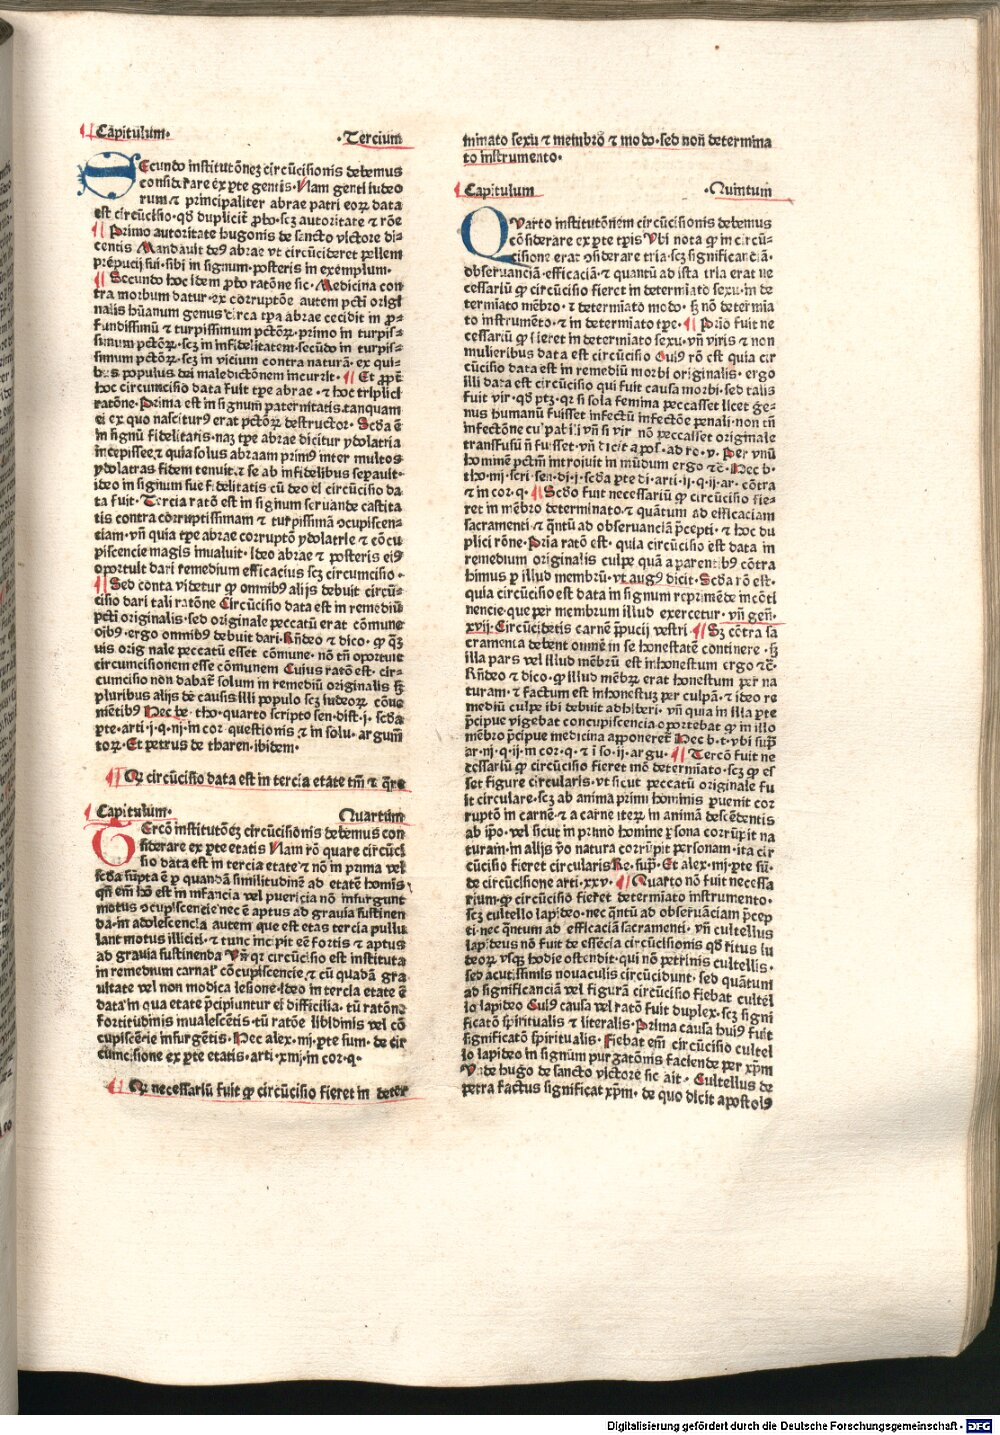 Capitulum· ·Tercium
SEcundo institutōneʒ circūcisionis debemus
considerare ex pte gentis· Nam genti iudeo
rum ⁊ principaliter abrae patri eoꝝ data
est circūcisio· qđ duplicit̄ ꝓbo· scʒ autoritate ⁊ rōe
¶ Primo autoritate hugonis de sancto victore di-
centis Mandauit deꝰ abrae vt circūcideret pellem
prēpucij sui· sibi in signum· posteris in exemplum·
¶ Secundo hoc idem ꝓbo ratōne sic· Medicina con
tra morbum datur· ex corruptōe autem pcti origi
nalis hūanum genus circa tpa abrae cecidit in ꝓ-
fundissimū ⁊ turpissimum pctōꝝ· primo in turpis-
simum pctōꝝ· scʒ in infidelitatem· secūdo in turpis-
simum pctōꝝ· scʒ in vicium contra naturā· ex qui-
bus populus dei maledictōnem incurrit· ¶ Et ꝓpt̄
hoc circumcisio data fuit tpe abrae· ⁊ hoc triplici
ratōne· Prima est in signum paternitatis tanquam
ei ex quo nasciturꝰ erat pctōꝝ destructor· Scđa ē
in signū fidelitatis· naʒ tpe abrae dicitur ydolatria
incepisse· ⁊ quia solus abraam primꝰ inter multos
ydolatras fidem tenuit· ⁊ se ab infidelibus sepauit·
ideo in signum sue fidelitatis cū deo ei circūcisio da
ta fuit· Tercia ratō est in signum seruande castita
tis contra corruptissimam ⁊ turpissimā ɔcupiscen-
ciam· vn̄ quia tpe abrae corruptō ydolatrie ⁊ cōcu
piscencie magis inualuit· Ideo abrae ⁊ posteris eiꝰ
oportuit dari remedium efficacius scʒ circumcisio·
¶ Sed conta videtur ꝙ omnibꝰ alijs debuit circū-
cisio dari tali ratōne Circūcisio data est in remediū
pcti originalis· sed originale peccatū erat cōmune
oībꝰ· ergo omnibꝰ debuit dari· Rn̄deo ⁊ dico· ꝙ qʒ
uis originale peccatū esset cōmune· nō tn̄ oportuit
circumcisionem esse cōmunem Cuius ratō est· cir-
cumcisio non dabat̄ solum in remediū originalis sʒ
pluribus alijs de causis illi populo scʒ iudeoꝝ cōue
niētibꝰ Hec be· tho· quarto scripto sen· dist· j· scđa
pte· arti· j· q· iij· in cor questionis ⁊ in solu· argum̄
toꝝ· Et petrus de tharen· ibidem·
¶ Qꝛ circūcisio data est in tercia etate tm̄ ⁊ q̄re
Capitulum· Quartum
TErcō institutōeʒ circūcisiōnis debemus con
siderare ex pte etatis Nam rō quare circūci
sio data est in tercia etate ⁊ nō in prima vel
scđa sūpta ē ꝑ quandā similitudinē ad etatē homis
qn̄ em̄ hō est in infancia vel puericia nō insurgunt
motus ɔcupiscencie nec ē aptus ad grauia sustinen
da· in adolescencia autem que est etas tercia pullu
lant motus illiciti· ⁊ tunc incipit eē fortis ⁊ aptus
ad grauia sustinenda Vn̄ qꝛ circūcisio est instituta
in remedium carnal' cōcupiscencie ⁊ cū quadā gra
uitate vel non modica lesione· Ideo in tercia etate ē
data in qua etate p̄cipiuntur ei difficilia· tū ratōne
fortitudinis inualescētis· tū ratōe libidinis vel cō
cupiscēcie insurgētis· Hec alex· iiij· pte sum· de cir
cumcisione ex pte etatis· arti· xiiij· in cor· q·
¶ Qꝛ necessariū fuit ꝙ circūcisio fieret in deter
minato sexu ⁊ membrō ⁊ modo· sed non determina
to instrumento·
Capitulum ·Quintum
QVarto institutōniem circūcisionis debemus
cōsiderare ex pte tpis Vbi nota ꝙ in circū-
cisione erat ɔsiderare tria· scʒ significanciā·
obseruanciā· efficaciā· ⁊ quantū ad ista tria erat ne
cessariū ꝙ circūcisio fieret in determiato sexu· in de
termiato mēbro· ⁊ determiato modo· sʒ nō determia
to instrumēto· ⁊ in determiato tpe· ¶ Primo fuit ne
cessariū ꝙ fieret in determiato sexu· vn̄ viris ⁊ non
mulieribus data est circūcisio Cuiꝰ rō est quia cir
cūcisio data est in remediū morbi originalis· ergo
illi data est circūcisio qui fuit causa morbi· sed talis
fuit vir· qđ ptʒ· qꝛ si sola femina peccasset licet ge-
nus humanū fuisset infectū infectōe penali· non tn̄
infectōne culpabili vn̄ si vir nō peccasset originale
transfusū n̄ fuisset· vn̄ dicit apos· ad ro· v· Per vnū
hominē pctm̄ introiuit in mūdum ergo ⁊c̄· Hec b·
tho· iiij· scri· sen· di· j· scđa pte di· arti· ij· q· ij· ar· cōtra
⁊ in cor· q· ¶ Scđo fuit necessariū ꝙ circūcisio fie-
ret in mēbro determinato· ⁊ quātum ad efficaciam
sacramenti ⁊ q̄ntū ad obseruanciā p̄cepti· ⁊ hoc du
plici rōne· Pria ratō est· quia circūcisio est data in
remedium originalis culpe quā a parentibꝰ cōtra
himus ꝑ illud membrū· vt augꝰ dicit· Scđa rō est·
quia circūcisio est data in signum reprimēde incōti
nencie· que per membrum illud exercetur· vn̄ gen̄·
xvij· Circūcidetis carnē p̄pucij vestri ¶ Sʒ cōtra sa
cramenta debent omnē in se honestatē continere· sʒ
illa pars vel illud mēbrū est inhonestum ergo ⁊c̄·
Rn̄deo ⁊ dico· ꝙ illud mēbꝝ erat honestum per na
turam· ⁊ factum est inhonestuʒ per culpā· ⁊ ideo re
mediū culpe ibi debuit adhiberi· vn̄ quia in illa pte
p̄cipue vigebat concupiscencia oportebat ꝙ in illo
mēbro p̄cipue medicina apponeret̄ Hec b· t· vbi sup̄
ar· iij· q· ij· in cor· q· ⁊ i so· ij· argu· ¶ Tercō fuit ne
cessariū ꝙ circūcisio fieret mō determiato· scʒ ꝙ es
set figure circularis· vt sicut peccatū originale fu
it circulare· scʒ ab anima primi hominis ꝑuenit cor
ruptō in carnē· ⁊ a carne iteꝝ in animā descēdentis
ab ipo· vel sicut in primo homine ꝑsona corrūpit na
turam· in alijs ꝟo natura corrūpit personam· ita cir
cūcisio fieret circularis Re· sup̄· Et alex· iiij· pte sū·
de circūcisione arti· xxv· ¶ Quarto nō fuit necessa
rium· ꝙ circūcisio fieret determiato instrumento·
scʒ cultello lapideo· nec q̄ntū ad obseruāciam p̄cep
ti· nec q̄ntum ad efficaciā sacramenti· vn̄ cultellus
lapideus nō fuit de essēcia circūcisionis qđ ritus iu
deoꝝ vsqʒ hodie ostendit· qui nō petrinis cultellis·
sed acutissimis nouaculis circūcidunt· sed quātum
ad significanciā vel figurā circūcisio fiebat cultel
lo lapideo Cuiꝰ causa vel ratō fuit duplex· scʒ signi
ficatō spiritualis ⁊ literalis· Prima causa huiꝰ fuit
significatō spiritualis· Fiebat em̄ circūcisio cultel
lo lapideo in signum purgatōnis faciende per xpm̄
Vnde hugo de sancto victore sic ait· Cultellus de
petra factus significat xpm̄· de quo dicit apostolꝰ
Digitalisierung gefördert durch die Deutsche Forschungsgemeinschaft - DFG